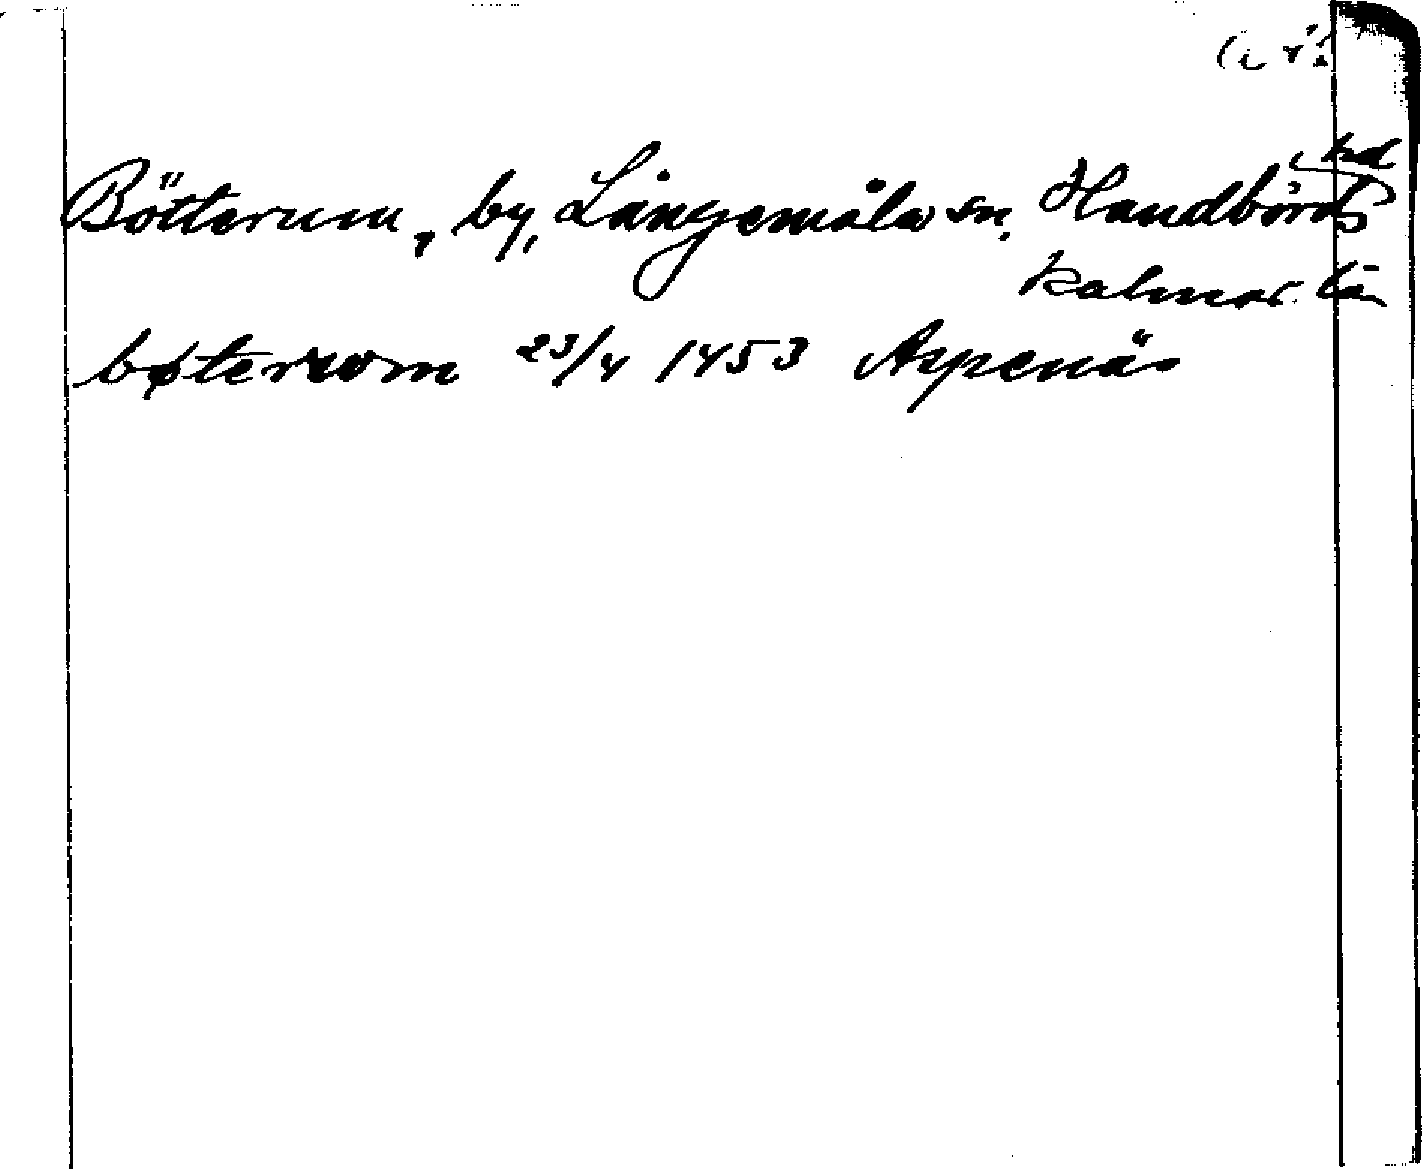 Bötterum, by, Långemåla sn, Handbörds hd
Kalmar län
bøterwm 23/4 1453 Aspenäs